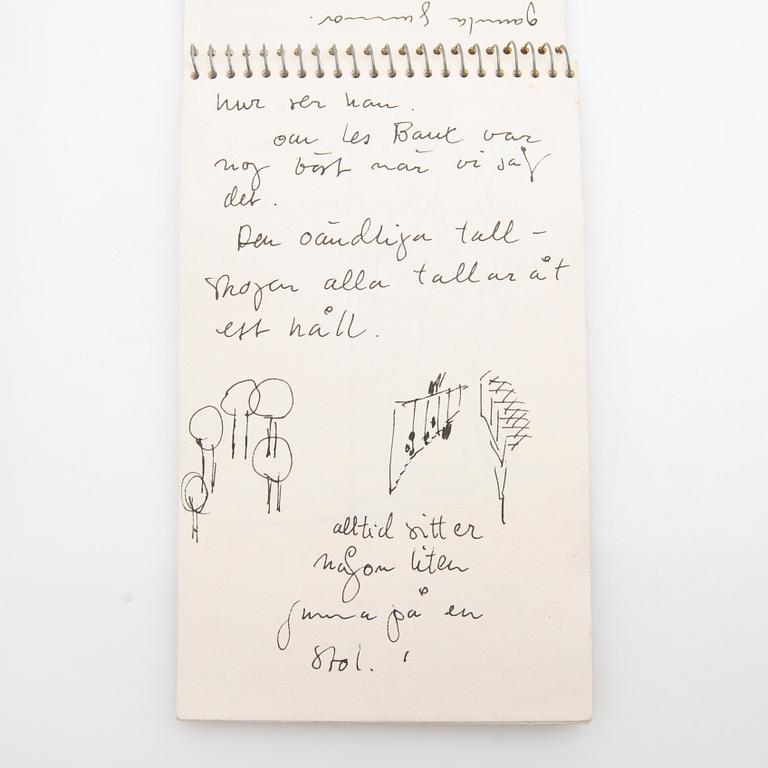 gamla gummor.
hur ser han.
om Les Baux var
nog bäst när vi såg
det.
Den oändliga tall-
skogen alla tallar åt
est håll.
alltid sitter
någon liten
gumma på en
stol.